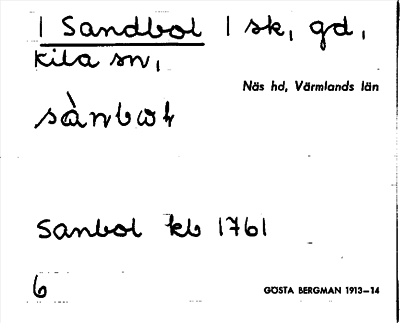 1 Sandbol 1 sk, gd,
Kila sn,
Näs hd, Värmlands län
sànbωɫ
Sanbol kb 1761
6
GÖSTA BERGMAN 1913–14